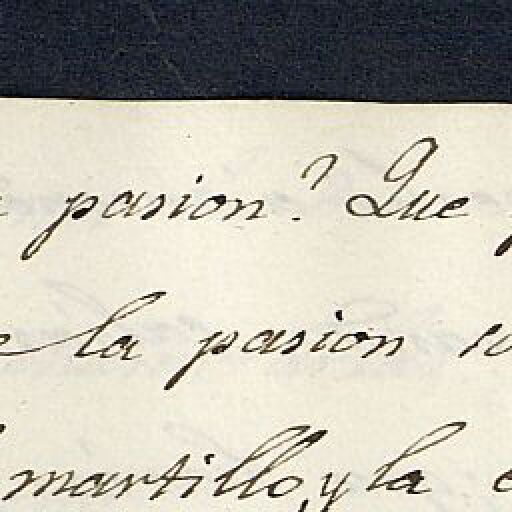 pasion? Que
la pasion
martillo, y la